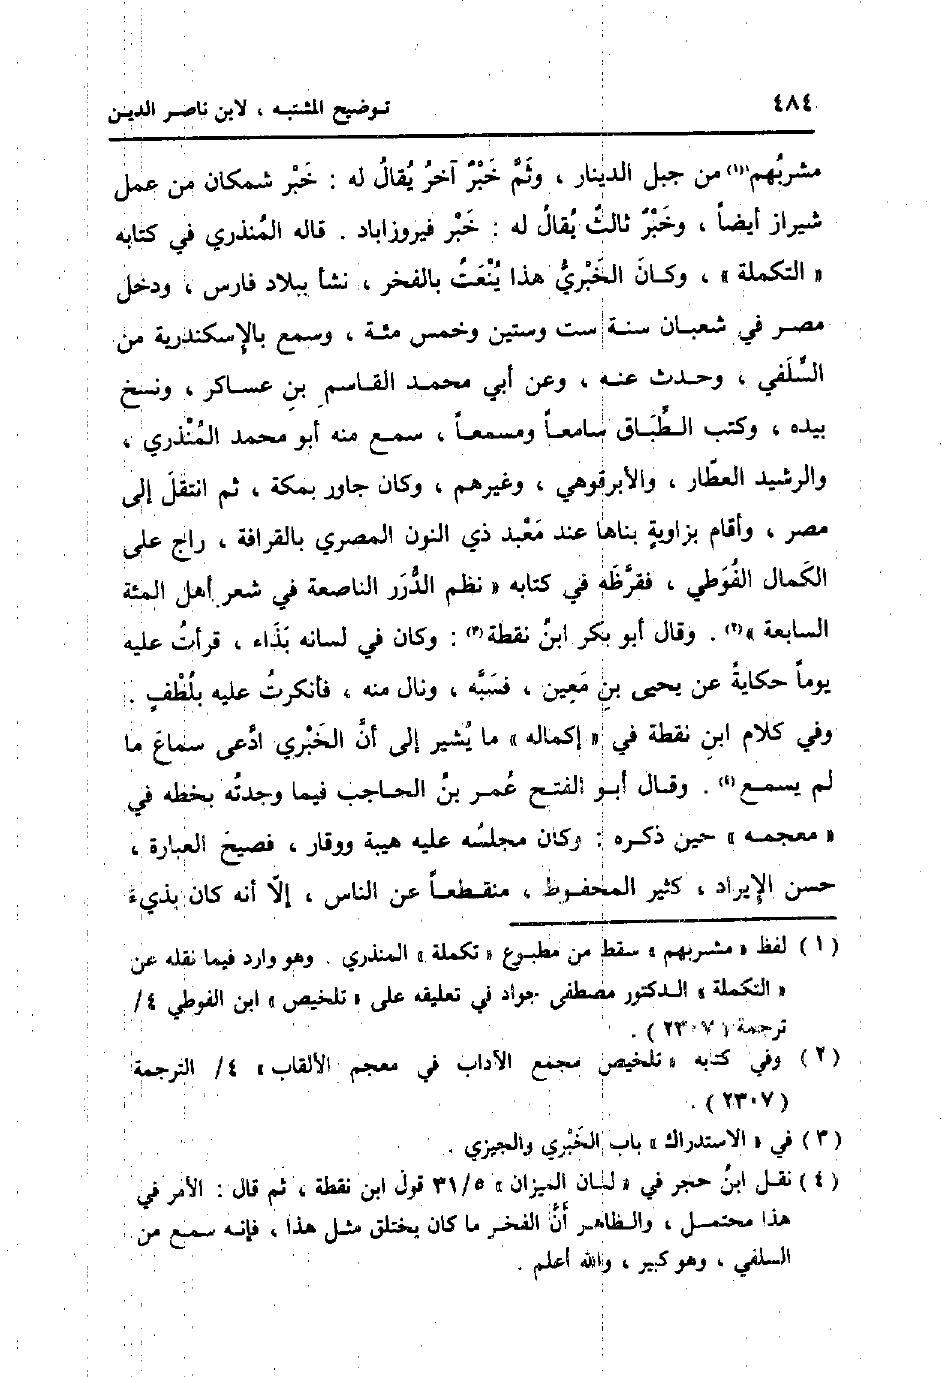 ٤٨٤
توضيح المشتبه ، لابن ناصر الدين
مشربُهم(١) من جبل الدينار ، وثَمَّ خَبْرٌ آخرُ يُقالُ له : خَبْر شمكان من عمل
شيراز أيضاً ، وخَبْرٌ ثالثٌ يُقالُ له : خَبْر فيروزاباد . قاله المُنذري في كتابه
« التكملة » ، وكانَ الخَبْريُّ هذا يُنْعَتُ بالفخر ، نشأ ببلاد فارس ، ودخل
مصر في شعبان سنة ست وستين وخمس مئة ، وسمع بالإسكندرية من
السِّلَفي ، وحدث عنه ، وعن أبي محمد القاسم بنِ عساكر ، ونسخ
بيده ، وكتب الطِّبَاق سامعاً ومسمعاً ، سمع منه أبو محمد المُنْذري ،
والرشيد العطّار ، والأبرقوهي ، وغيرهم ، وكان جاور بمكة ، ثم انتقلَ إلى
مصر ، وأقام بزاويةٍ بناها عند مَعْبد ذي النون المصري بالقرافة ، راج على
الكَمال الفُوَطي ، فقرَّظَه في كتابه « نظم الدُّرَر الناصعة في شعر أهل المئة
السابعة »(٢) . وقال أبو بكر ابنُ نقطة(٣) : وكان في لسانه بَذَاء ، قرأتُ عليه
يوماً حكايةً عن يحيى بنِ مَعِين ، فسَبَّه ، ونال منه ، فأنكرتُ عليه بلُطْفٍ .
وفي كلام ابنِ نقطة في « إكماله » ما يُشير إلى أنَّ الخَبْري ادَّعى سماعَ ما
لم يسمع(٤) . وقال أبو الفتح عُمر بنُ الحاجب فيما وجدتُه بخطه في
« معجمه » حين ذكره : وكان مجلسُه عليه هيبة ووقار ، فصيحَ العبارة ،
حسن الإيراد ، كثير المحفوظ ، منقطعاً عن الناس ، إلّا أنه كان بذيءَ
(١) لفظ « مشربهم » سقط من مطبوع « تكملة » المنذري . وهو وارد فيما نقله عن
« التكملة » الدكتور مصطفى جواد في تعليقه على « تلخيص » ابن الفوطي ٤/
ترجمة (٢٣٠٧) .
(٢) وفي كتابه « تلخيص مجمع الآداب في معجم الألقاب » ٤/ الترجمة
(٢٣٠٧) .
(٣) في « الاستدراك » باب الخَبْري والجيزي .
(٤) نقل ابنُ حجر في « لسان الميزان » ٣١/٥ قولَ ابن نقطة ، ثم قال : الأمر في
هذا محتمل ، والظاهر أنَّ الفخر ما كان يختلق مثل هذا ، فإنه سمع من
السلفي ، وهو كبير ، والله أعلم .